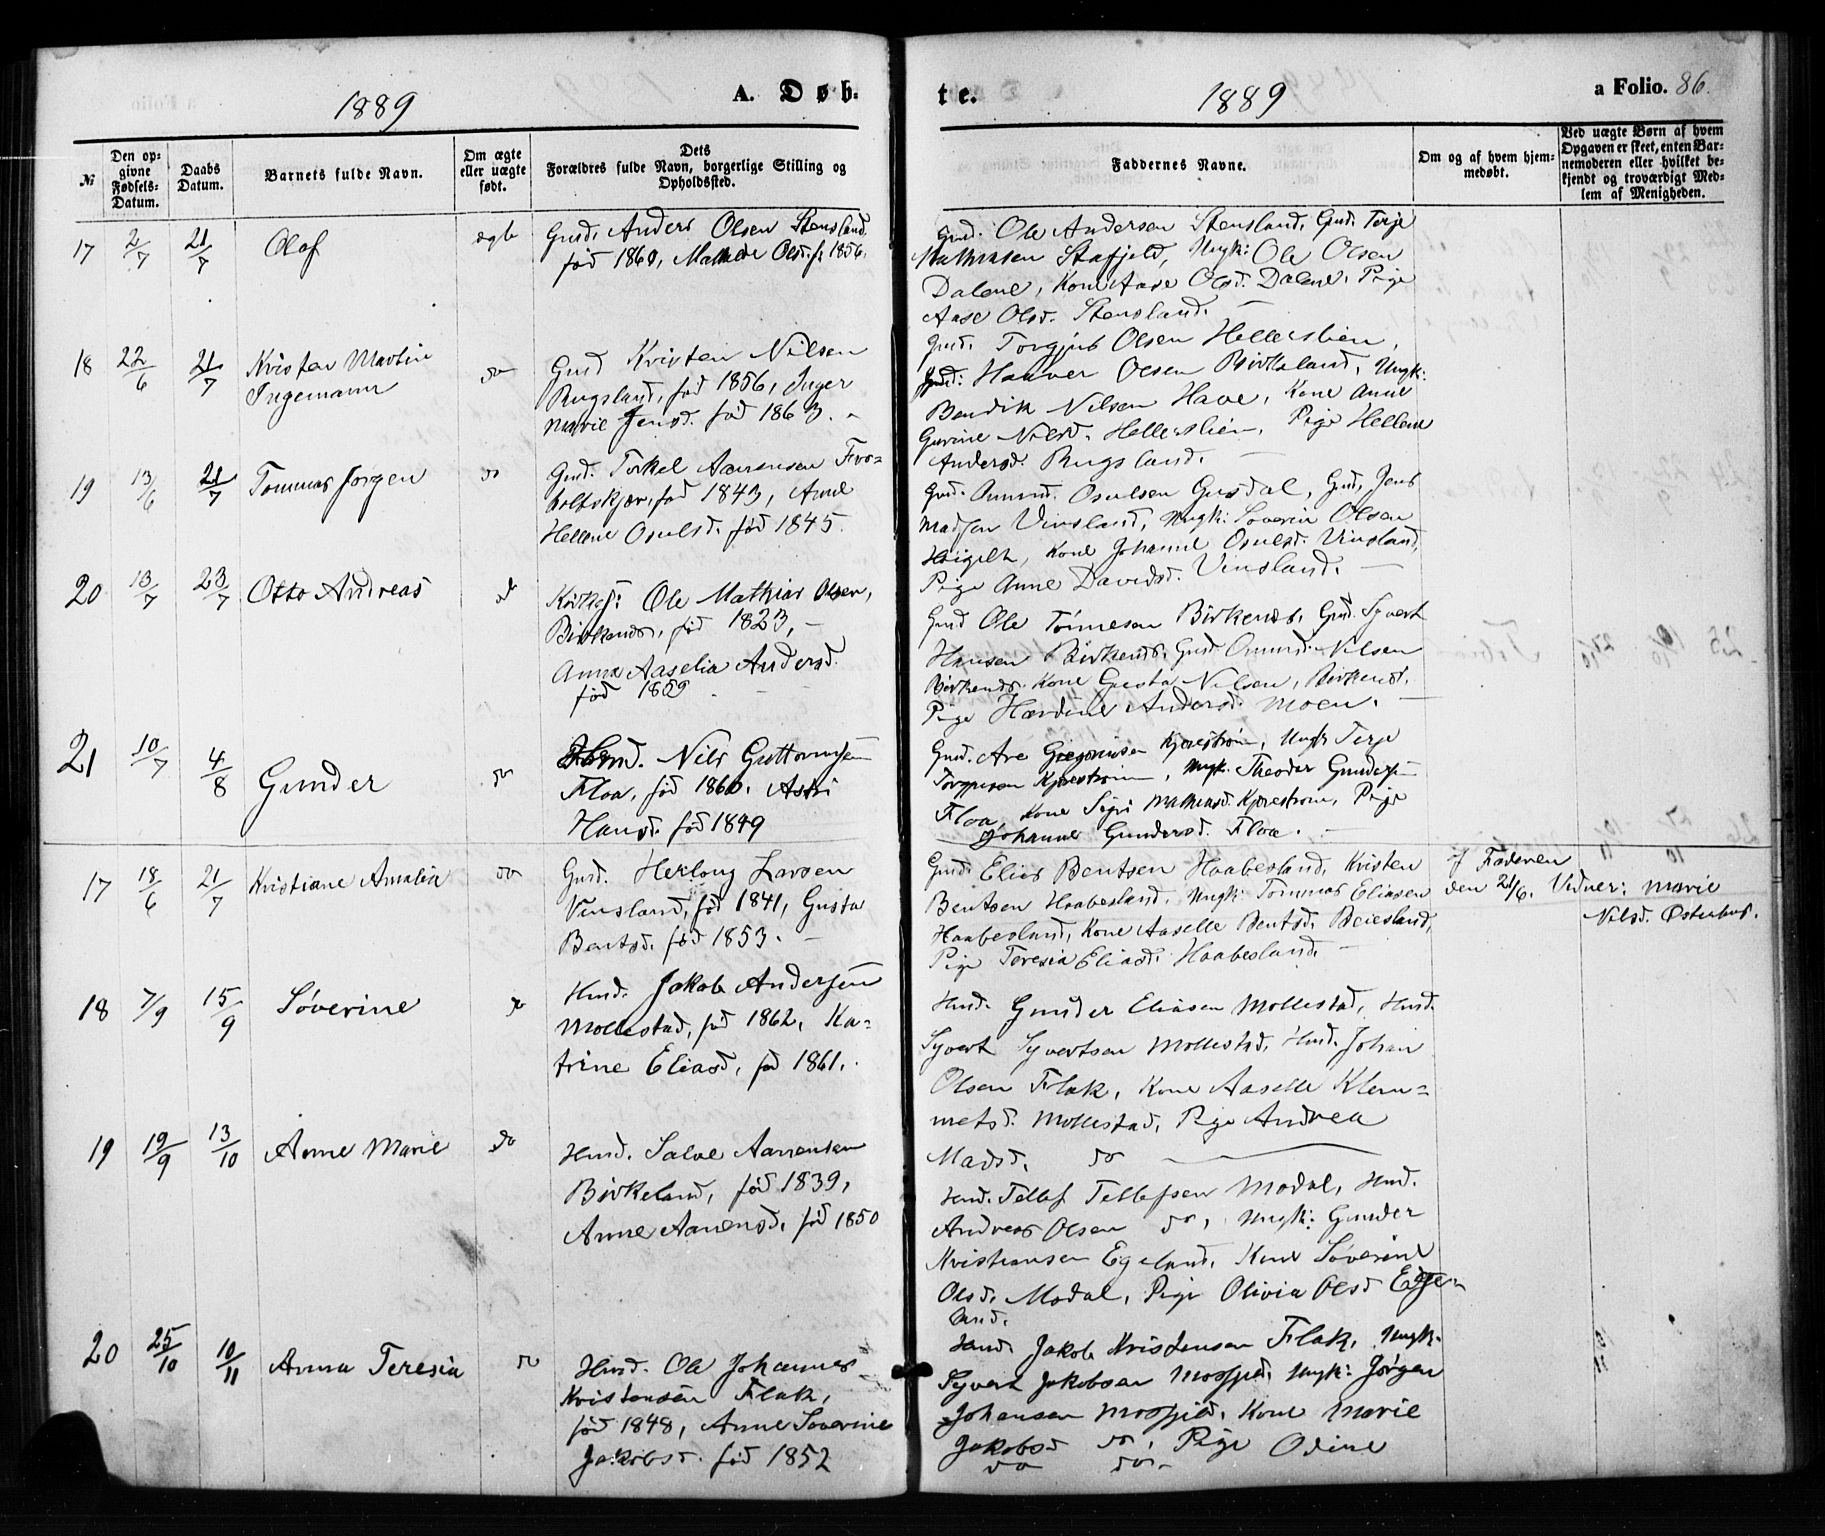 1889
A. Døb-
te.
1889
a Folio. 86.
№
Den opgivne Fødsels-Datum.
Daabs Datum.
Barnets fulde Navn.
Om ægte eller uægte født.
Dets Forældres fulde Navn, borgerlige Stilling og Opholdssted.
Faddernes Navne.
Om og af hvem hjemmedøbt.
Ved uægte Børn af hvem Opgaven er skeet, enten Barnemoderen eller hvilket bekjendt og troværdigt Medlem af Menigheden.
17 2/7 21/7 Olaf ægte
Gmd. Anders Olsen Stensland,
fød 1860, Mathilde Olsd. f. 1856.
Gmd. Ole Andersen Stensland, Gmd. Terje
Mathiasen Stafjeld, Ungk: Ole Olsen
Dalene, Kone Aase Olsd. Dalene, Pige
Aase Olsd. Stensland.
18 22/6 21/7 Kristen Martin
Ingemann do
Gmd Kristen Nilsen
Rugsland, fød 1856, Inger
Marie Jensd. fød 1863.
Gmd. Torgjus Olsen Hellerslien,
Gmd: Haaver Olsen Birkeland, Ungk:
Bendik Nilsen Have, Kone Anne
Gurine Nilsd. Hellerslien, Pige Hellene
Andersd. Rugsland.
19 13/6 21/7 Tommas Jørgen do
Gmd. Torkel Aanensen Fro-
holtskjær, fød 1843, Anne
Hellene Osulsd. fød 1845.
Gmd. Anund Osulsen Gusdal, Gmd. Jens
Madsen Vinsland, Ungk: Søverin Olsen
Kone Johanne Osulsd. Vinsland,
Pige Anne Davidsd. Vinsland.
20 13/7 23/7 Otto Andreas do
Ole Mathias Olsen,
Birkenes, fød 1823,
Anna Aaselia Andersd.
fød 1859
Gmd Ole Tønnesen Birkenes, Gmd. Syvert
Hansen Birkenes, Gmd Anund Nilsen
Birkenes. Kone Gusta Nilsen, Birkenes.
Pige Andersd. Moen.
21 10/7 4/8 Gunder do
Nils Guttormsen
Floa, fød 1860. Astri
Hansd. fød 1849
Gmd. Are Gregoriusen Kjærestrøm, Ungk Terje
Torgjusen Kjærestrøm, Ungk. Theodor Gundersen
Floa, Kone Sigri Mathiasd. Kjærestrøm, Pige
Johanne Gundersd. Floa.
17 18/6 21/7 Kristiane Amalia do
Gmd. Herlong Larsen
Vinsland, fød 1841, Gusta
Bentsd. fød 1853.
Gmd. Elias Bentsen Haabesland, Kristen
Bentsen Haabesland, Ungk: Tommas Eliasen
Haabesland, Kone Aaselle Bentsd. Beiesland,
Pige Teresia Eliasd. Haabesland.
af Faderen
den 21/6. Vidner: Marie
Nilsd. Østerhus.
18 7/9 15/9 Søverine do
Hmd. Jakob Andersen
Mollestad, fød 1862, Ka-
trine Eliasd, fød 1861.
Hmd. Gunder Eliasen Mollestad, Hmd.
Syvert Syvertsen Mollestad, Hmd. Johan
Olsen Flak, Kone Aaselle Klem-
metsd. Mollestad, Pige Andrea
Madsd. do
19 19/9 13/10 Anne Marie do
Hmd. Salve Aanensen
Birkeland, fød 1839,
Anne Aanensd, fød 1850
Hmd. Tellef Tellefsen Modal, Hmd.
Andreas Olsen do, Ungk: Gunder
Kristiansen Egeland, Kone Søverine
Olsd, Modal, Pige Olivia Olsd Ege-
land.
20 25/10 10/11 Anna Teresia do
Hmd. Ole Johannes
Kristensen Flak,
fød 1848, Anne Søverine
Jakobsd. fød 1852
Hmd. Jakob Kristensen Flak, Ungk.
Syvert Jakobsen Mosfjel, Ungk: Jørgen
Johansen Mosfjel, Kone Marie
Jakobsd do, Pige Odine
do do